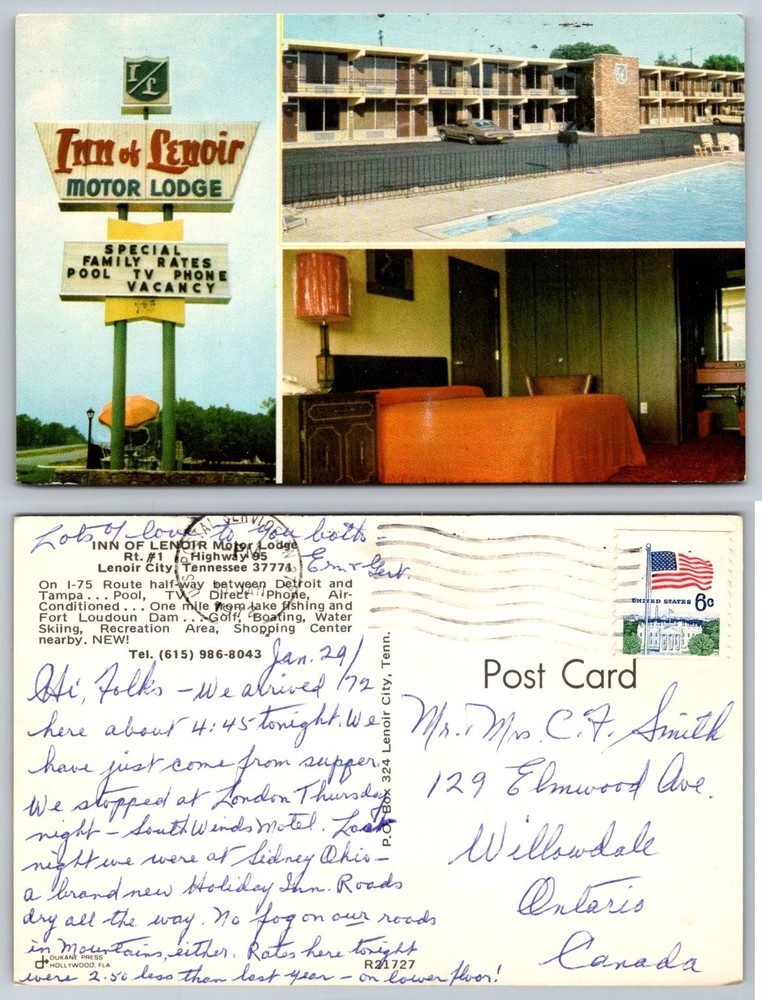 I/L
Inn of Lenoir
MOTOR LODGE
SPECIAL
FAMILY RATES
POOL TV PHONE
VACANCY
Lots of love to you both –
Ern & Gert.
INN OF LENOIR Motor Lodge
Rt. #1 Highway 95
Lenoir City, Tennessee 37771
On I-75 Route half-way between Detroit and
Tampa . . . Pool, TV, Direct Phone, Air-
Conditioned . . . One mile from lake fishing and
Fort Loudoun Dam . . . Golf, Boating, Water
Skiing, Recreation Area, Shopping Center
nearby. NEW!
Tel. (615) 986-8043
Jan. 29/72
Hi, Folks – We arrived
here about 4:45 tonight. We
have just come from supper.
We stopped at London Thursday
night – South Winds Motel. Last
night we were at Sidney Ohio –
a brand new Holiday Inn. Roads
dry all the way. No fog on our roads
in Mountains, either. Rates here tonight
were 2.50 less than last year – on lower floor!
DUKANE PRESS
HOLLYWOOD, FLA
R21727
P.O. Box 324 Lenoir City, Tenn.
UNITED STATES 6c
Post Card
Mr. & Mrs C. F. Smith
129 Elmwood Ave.
Willowdale
Ontario
Canada